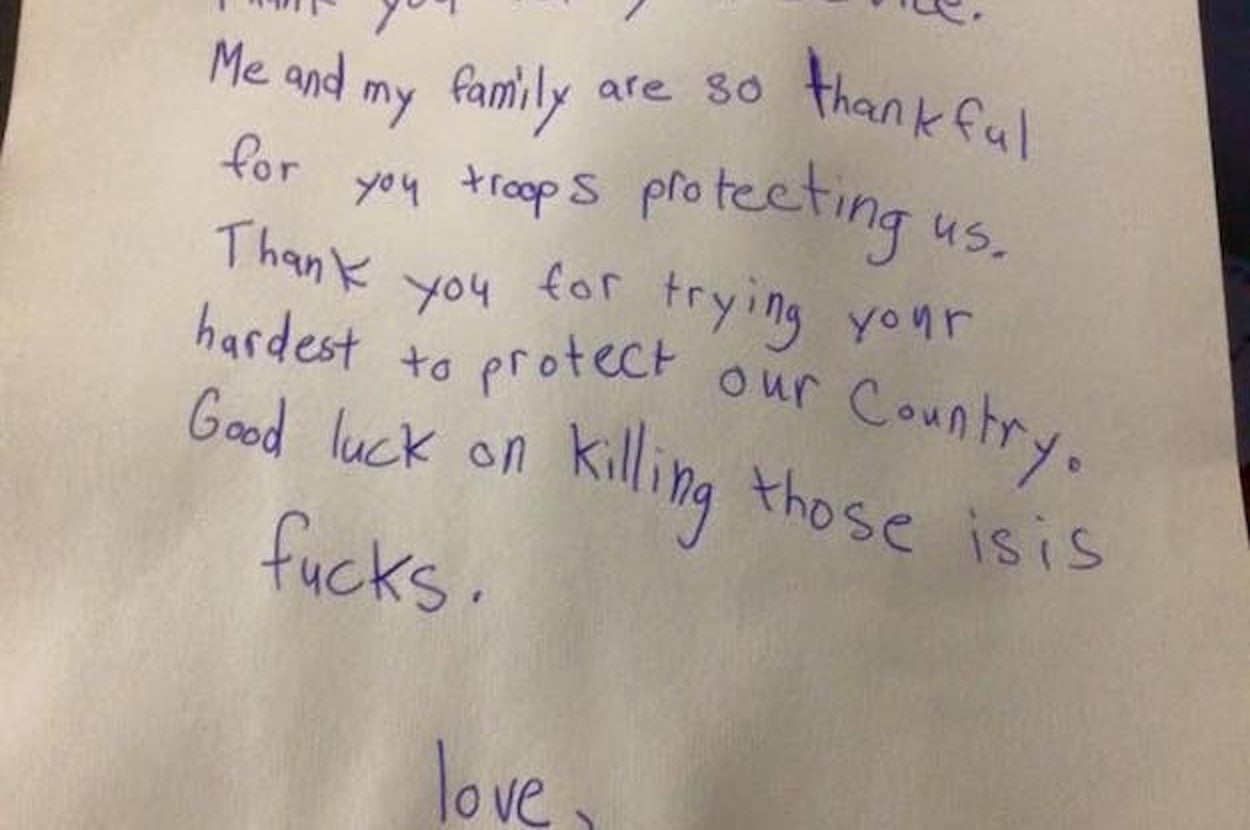 Thank you
Me and my family are so thankful
for you troops protecting us.
Thank you for trying your
hardest to protect our Country.
Good luck on killing those isis
fucks.
love,